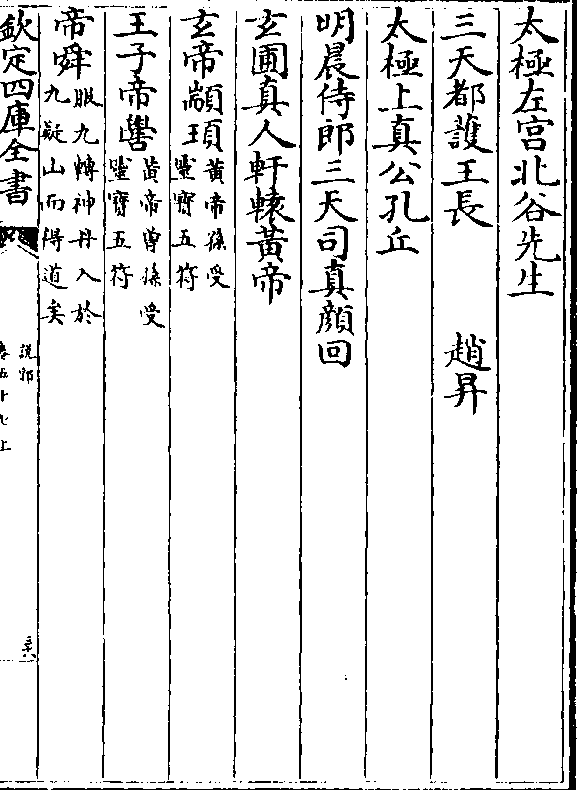 太極左宫北谷先生
三天都護王長　趙昇
太極上真公孔丘
明晨侍郎三天司真顔回
玄圃真人軒轅黄帝
玄帝顓頊黄帝孫受
靈寳五符
王子帝嚳黄帝曽孫受
靈寳五符
帝舜服九轉神丹入於
九疑山而得道矣
欽定四庫全書
説郛
卷五十七上